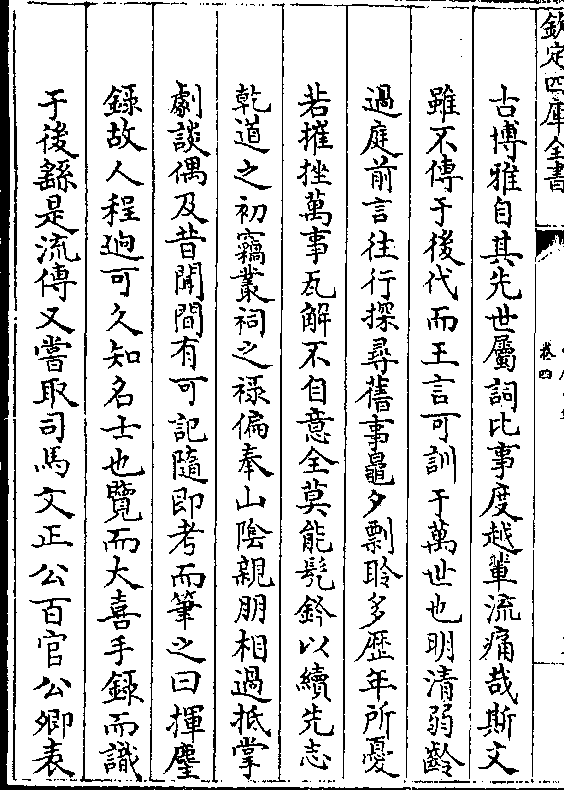 欽定四庫全書
卷四
古博雅自其先世屬詞比事度越輩流痛哉斯文
雖不傳于後代而王言可訓于萬世也明清弱齡
過庭前言往行探尋舊事鼂夕剽聆多歴年所憂
若摧挫萬事瓦解不自意全莫能以續先志
乾道之初竊叢祠之禄偏奉山陰親朋相過抵掌
劇談偶及昔聞間有可記隨即考而筆之曰揮麈
録故人程逈可久知名士也覽而大喜手録而識
于後繇是流傳又嘗取司馬文正公百官公卿表